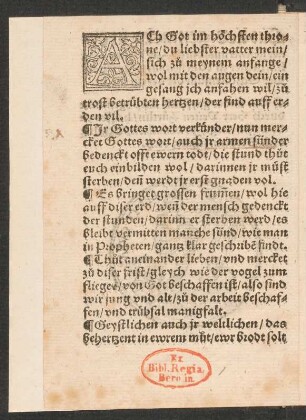 ACh Got im höchsten thro⸗
ne/du liebster vatter mein/
sich zů meynem anfange/
wol mit den augen dein/ein
gesang jch anfahen wil/zů
trost betrübten hertzen/der sind auff er⸗
den vil.
¶Jr Gottes wort verkünder/nun mer⸗
cket Gottes wort/auch jr armen sünder
bedenckt offt ewern todt/die stund thůt
euch einbilden wol/darinnen jr müst
sterben/deñ werdt jr erst gnaden vol.
¶Es bringet grossen frummen/wol hie
auff diser erd/weñ der mensch gedenckt
der stunden/darinn er sterben werd/es
bleibt vermitten manche sünd/wie man
in Propheten/gantz klar geschribẽ findt.
¶Thůt aneinander lieben/vnd mercket
zů diser frist/gleych wie der vogel zum
fliegẽ/von Got beschaffen ist/also sind
wir jung vnd alt/zů der arbeit beschaf⸗
fen/vnd trübsal manigfalt.
¶Geystlichen auch jr weltlichen/das
behertzent in ewrem můt/ewr brodt solt
Ex
Bibl. Regia
Berolin.